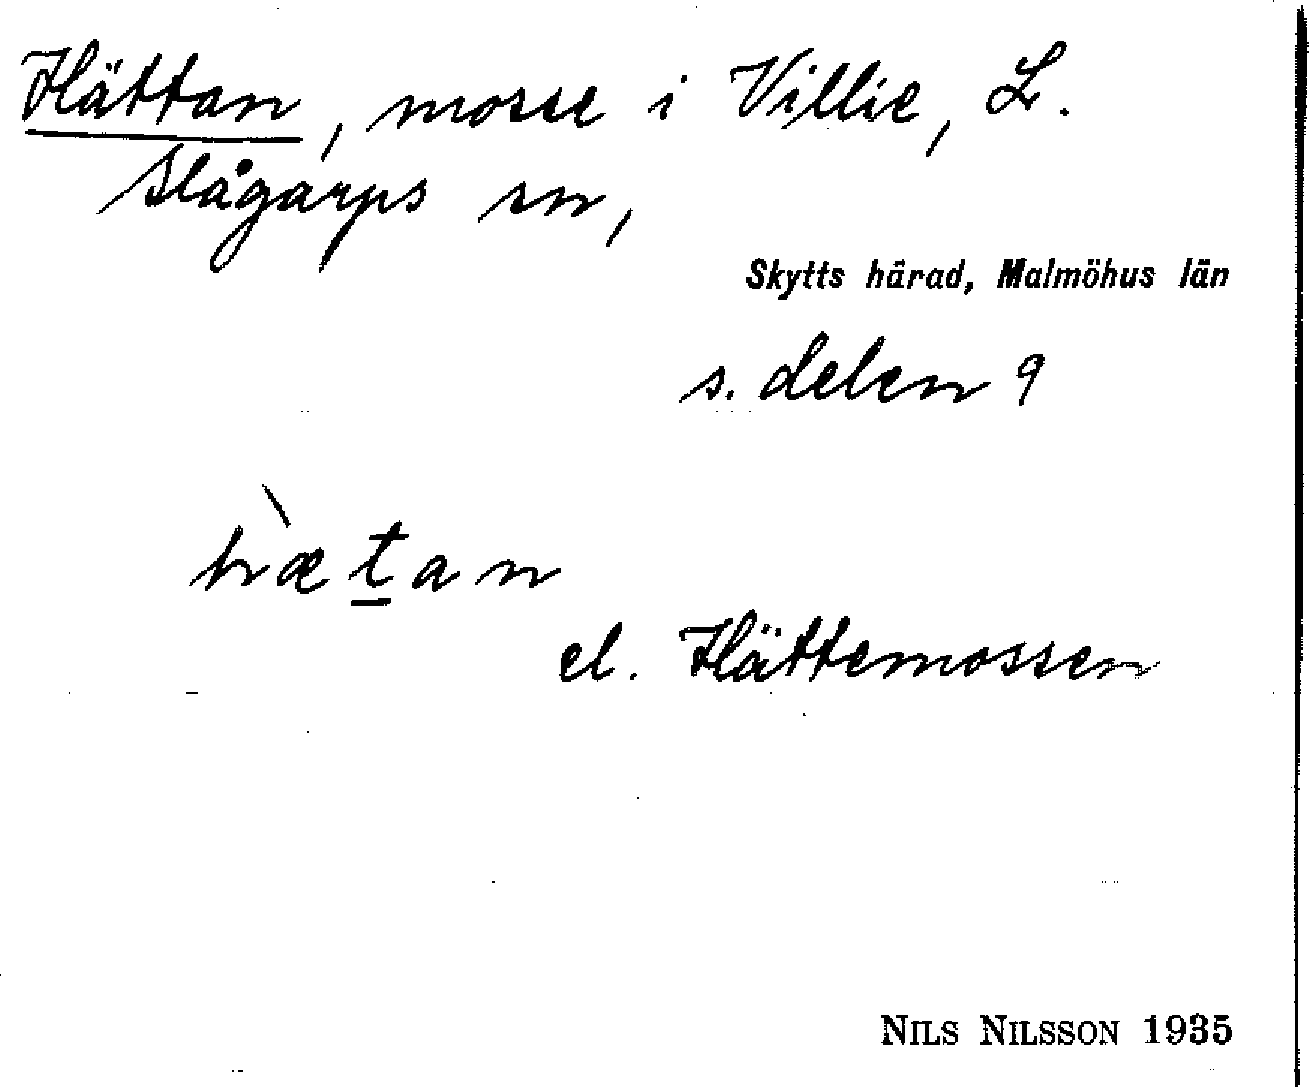 Hättan, mosse i Villie, L.
Slågarps sn,
Skytts härad, Malmöhus län
s. delen 9
hæ̀t̲an
el. Hättemossen
NILS NILSSON 1935